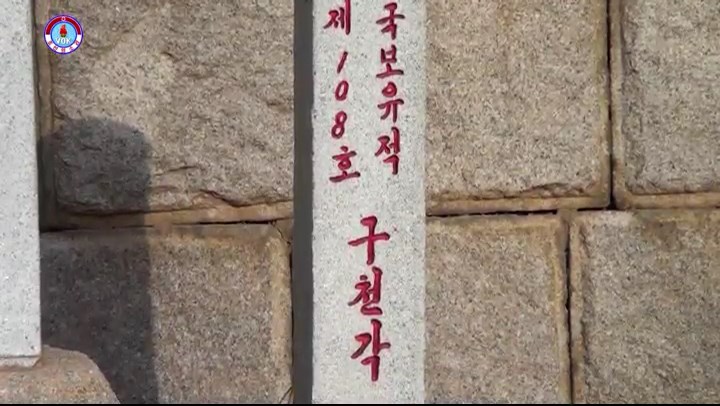 VOK
국보유적
제108호
구천각